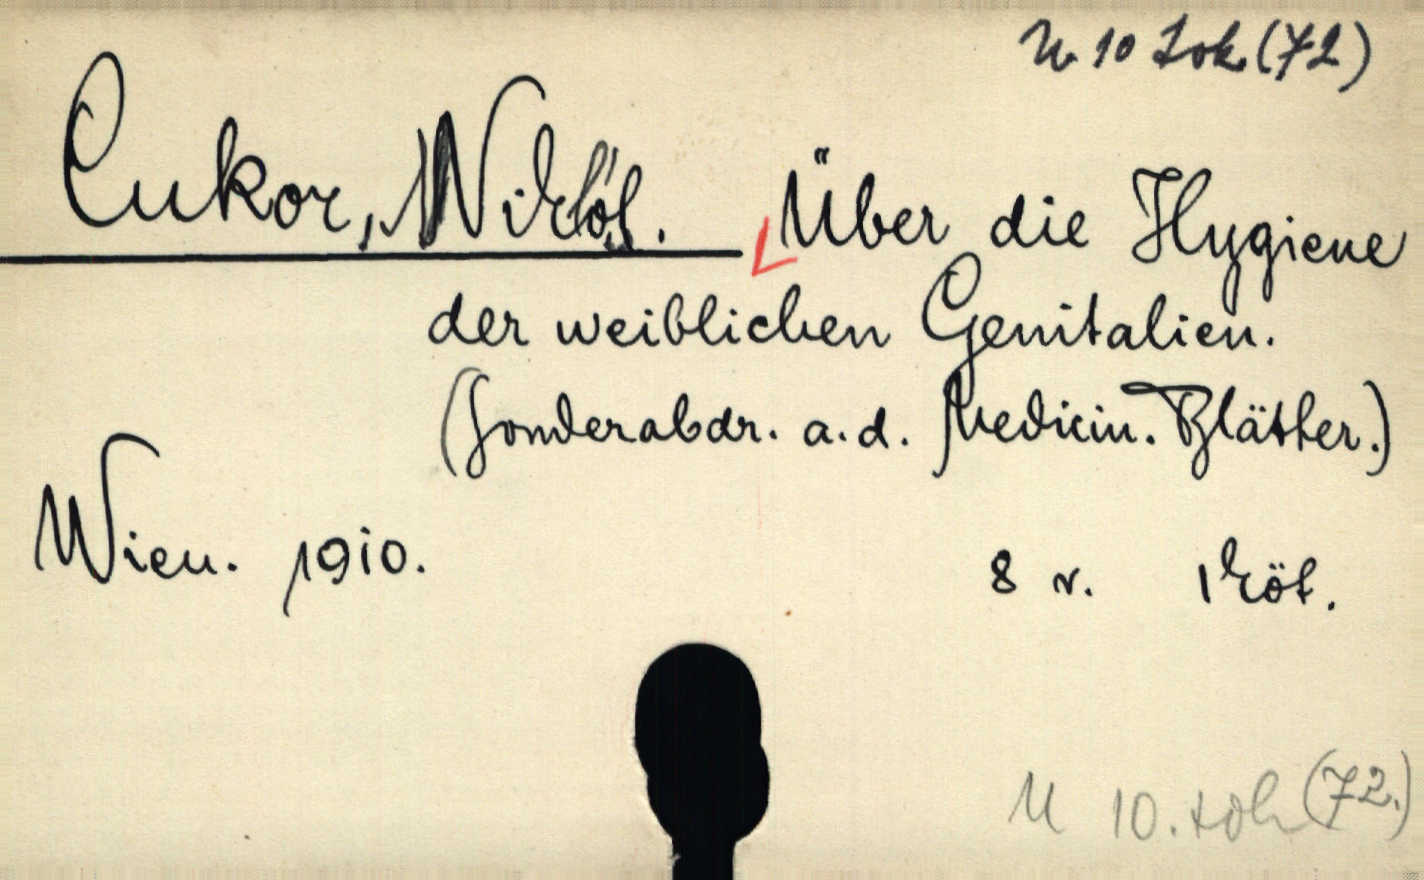 U 10 Sok. (72)
Cukor, Miklós. Über die Hygiene
der weiblichen Genitalien.
(Sonderabdr. a. d. Medicin. Blätter.)
Wien. 1910.
8 r. 1 köt.
U 10. sok (72.)